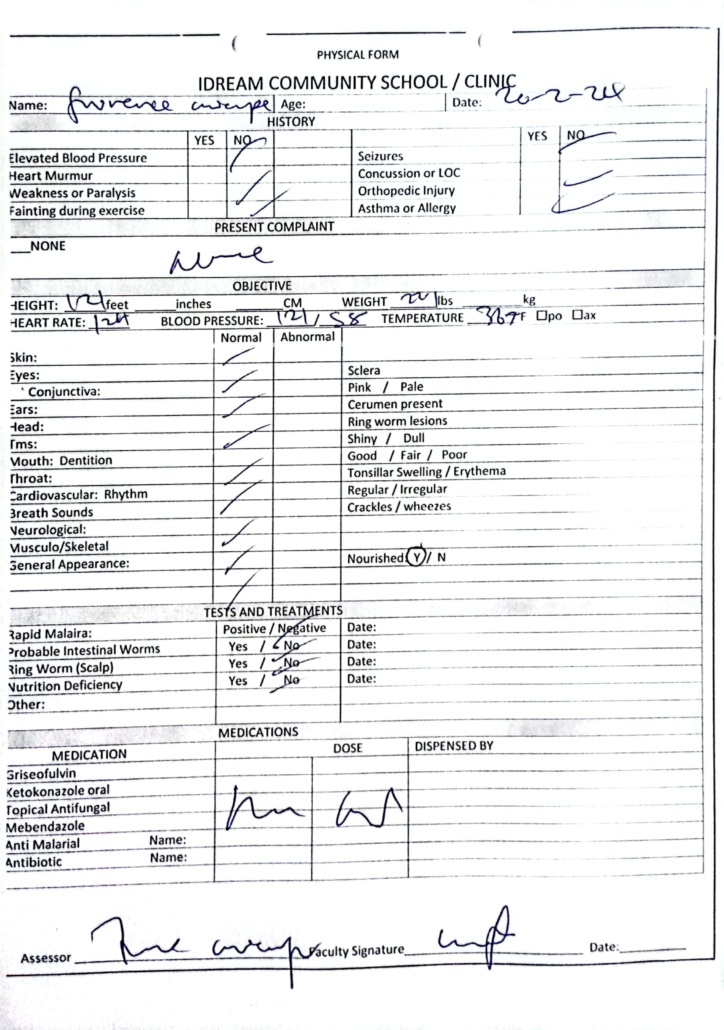 PHYSICAL FORM
IDREAM COMMUNITY SCHOOL / CLINIC
Name: Age: Date: 20-2-24
HISTORY
YES NO YES NO
Elevated Blood Pressure Seizures
Heart Murmur Concussion or LOC
Weakness or Paralysis Orthopedic Injury
Fainting during exercise Asthma or Allergy
PRESENT COMPLAINT
__NONE
None
OBJECTIVE
HEIGHT: feet inches CM WEIGHT lbs kg
HEART RATE: 124 BLOOD PRESSURE: 121/58 TEMPERATURE 367F □po □ax
Normal Abnormal
Skin:
Eyes: Sclera
` Conjunctiva: Pink / Pale
Ears: Cerumen present
Head: Ring worm lesions
Tms: Shiny / Dull
Mouth: Dentition Good / Fair / Poor
Throat: Tonsillar Swelling / Erythema
Cardiovascular: Rhythm Regular / Irregular
Breath Sounds Crackles / wheezes
Neurological:
Musculo/Skeletal
General Appearance: Nourished: Y / N
TESTS AND TREATMENTS
Rapid Malaira: Positive / Negative Date:
Probable Intestinal Worms Yes / No Date:
Ring Worm (Scalp) Yes / No Date:
Nutrition Deficiency Yes / No Date:
Other:
MEDICATIONS
MEDICATION DOSE DISPENSED BY
Griseofulvin
Ketokonazole oral
Topical Antifungal
Mebendazole
Anti Malarial Name:
Antibiotic Name:
Assessor Faculty Signature Date: